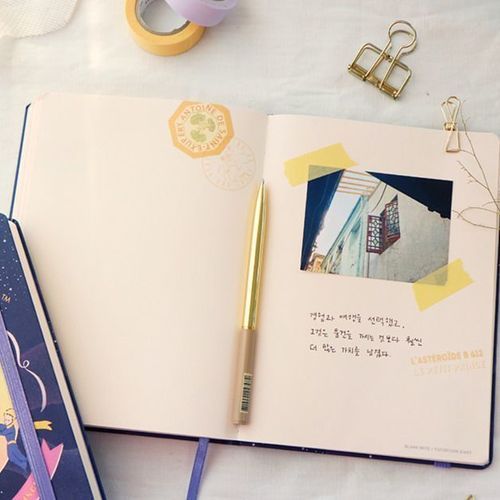 ANTOINE DE SAINT-EXUPÉRY
경험과 여행을 선택했고,
그것은 물건을 가지는 것보다 훨씬
더 많은 가치를 남겼다.
L'ASTÉROÏDE B 612
TM